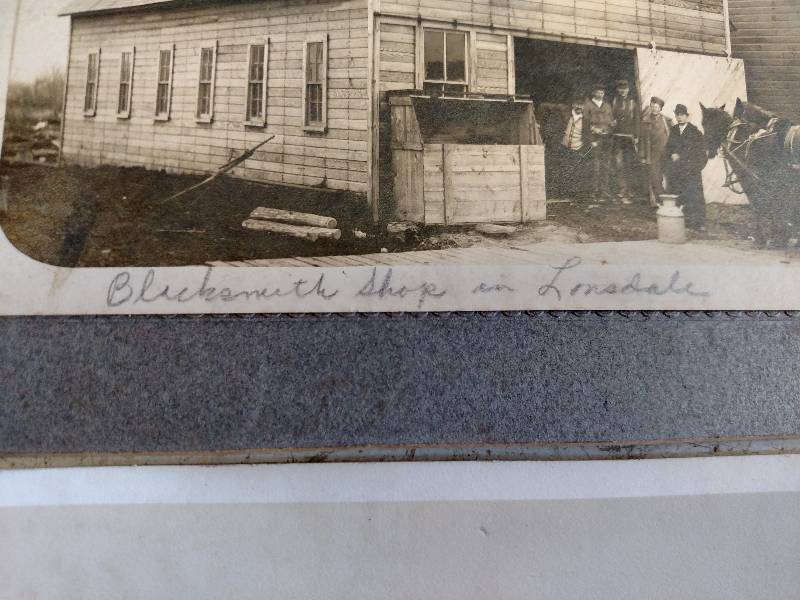 Blacksmith Shop in Lonsdale